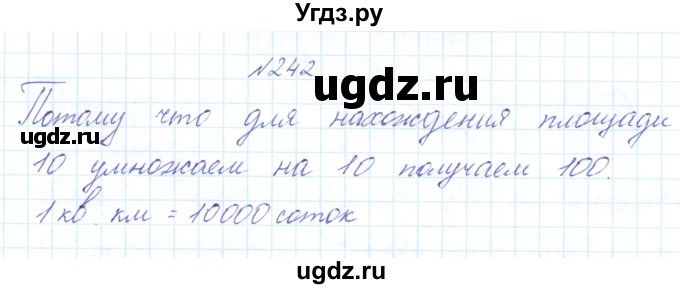 Угдз.ру
№242
ugdz.ru
Потому что для нахождения площади
ugdz.ru ugdz.ru
10 умножаем на 10 получаем 100.
1 кв. км = 10000 соток
ugdz.ru
ugdz.ru